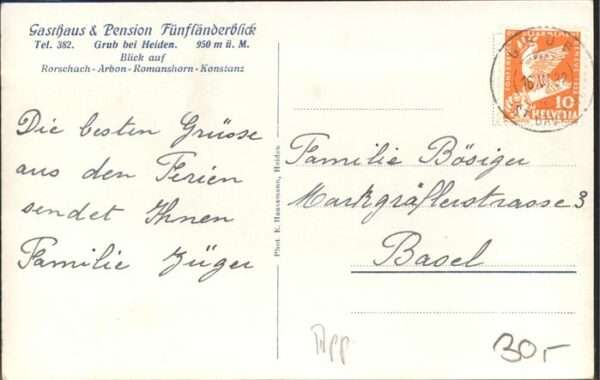 Gasthaus & Pension Fünfländerblick
Tel. 382. Grub bei Heiden. 950 m ü. M.
Blick auf
Rorschach - Arbon - Romanshorn - Konstanz
Die besten Grüsse
aus den Ferien
sendet Ihnen
Familie Züger
Phot. E. Hausamann, Heiden
GRUB
HELVETIA
10
Familie Bösiger
Markgräflerstrasse 3
Basel
App
30,-